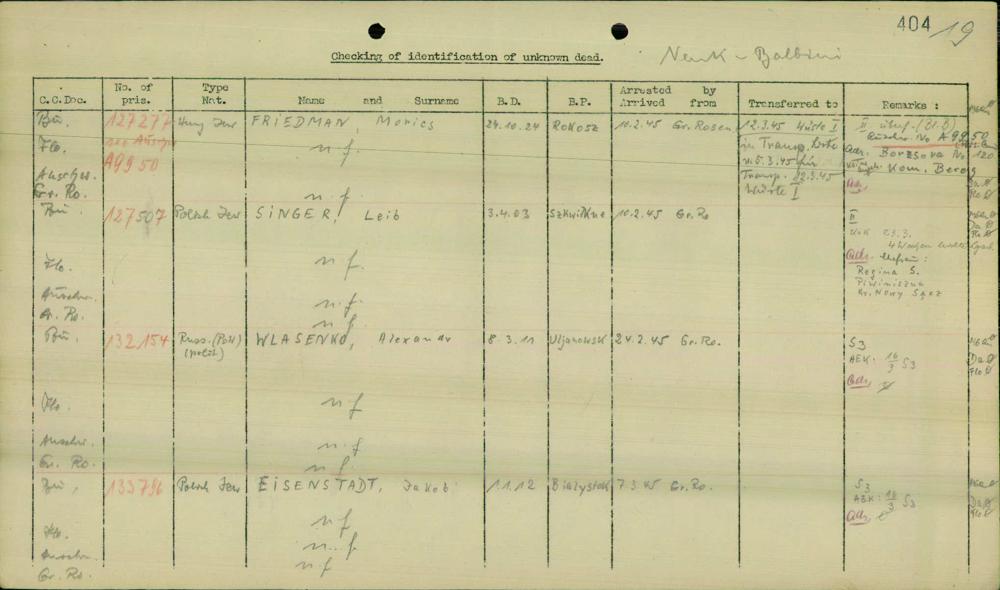 404 / 19
Checking of identification of unknown dead.
Neuk - Balbini
C.C.Doc. No. of pris. Type Nat. Name and Surname B.D. B.P. Arrested by Arrived from Transferred to Remarks :
Bu. 127277 Hung Jew FRIEDMAN, Morics 24.10.24 Rokosz 10.2.45 Gr. Rosen 12.3.45 Wüste I II
Flo. n. f. in Transp. Liste Auschw. No A9950
A9950 v. 5.3.45 für Adr. Borzsova No 120
Auschw. Transp. 12.3.45 Kom. Bereg
Gr. Ro. n. f. Wüste I Adr.
Bu. 127507 Polish Jew SINGER, Leib 3.4.03 10.2.45 Gr. Ro II
23.3.
4 Wochen
Flo. n. f. Adr. Ehefrau :
Regina S.
Auschw. n. f. Piwniczna
G. Ro. n. f. Kr. Nowy Sącz
Bu. 132154 Russ. (Pol) WLASENKO, Alexandr 8.3.11 Uljanowsk 24.2.45 Gr. Ro. S3
(polit) AEK: 16/3 S3
Adr.
Flo. n f
Auschw. n f
Gr. Ro. n f
Bu. 133786 Polish Jew EISENSTADT, Jakob 1.1.12 Białystok 7.3.45 Gr. Ro. S3
AEK: 16/3 S3
Adr.
Flo. n f
Auschw. n. f
Gr. Ro. n f